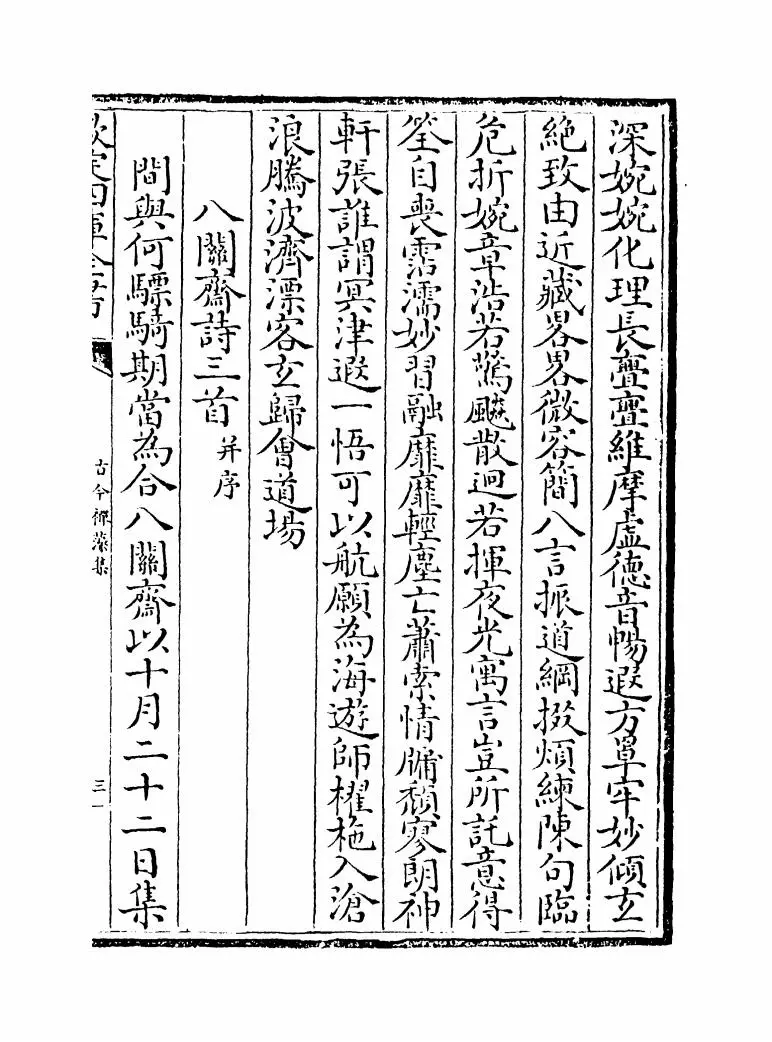 深婉婉化理長亹亹維摩虛德音暢遐方罩牢妙傾玄
絶致由近藏畧畧微容簡八言振道綱掇煩練陳句臨
危折婉章浩若驚飈散迥若揮夜光寓言豈所託意得
筌自喪霑濡妙習融靡靡輕塵亡蕭索情牖頹寥朗神
軒張誰謂冥津遐一悟可以航願為海遊師櫂柂入滄
浪騰波濟漂客玄歸會道場
八關齋詩三首并序
間與何驃騎期當為合八關齋以十月二十二日集
欽定四庫全書
古今禪藻集